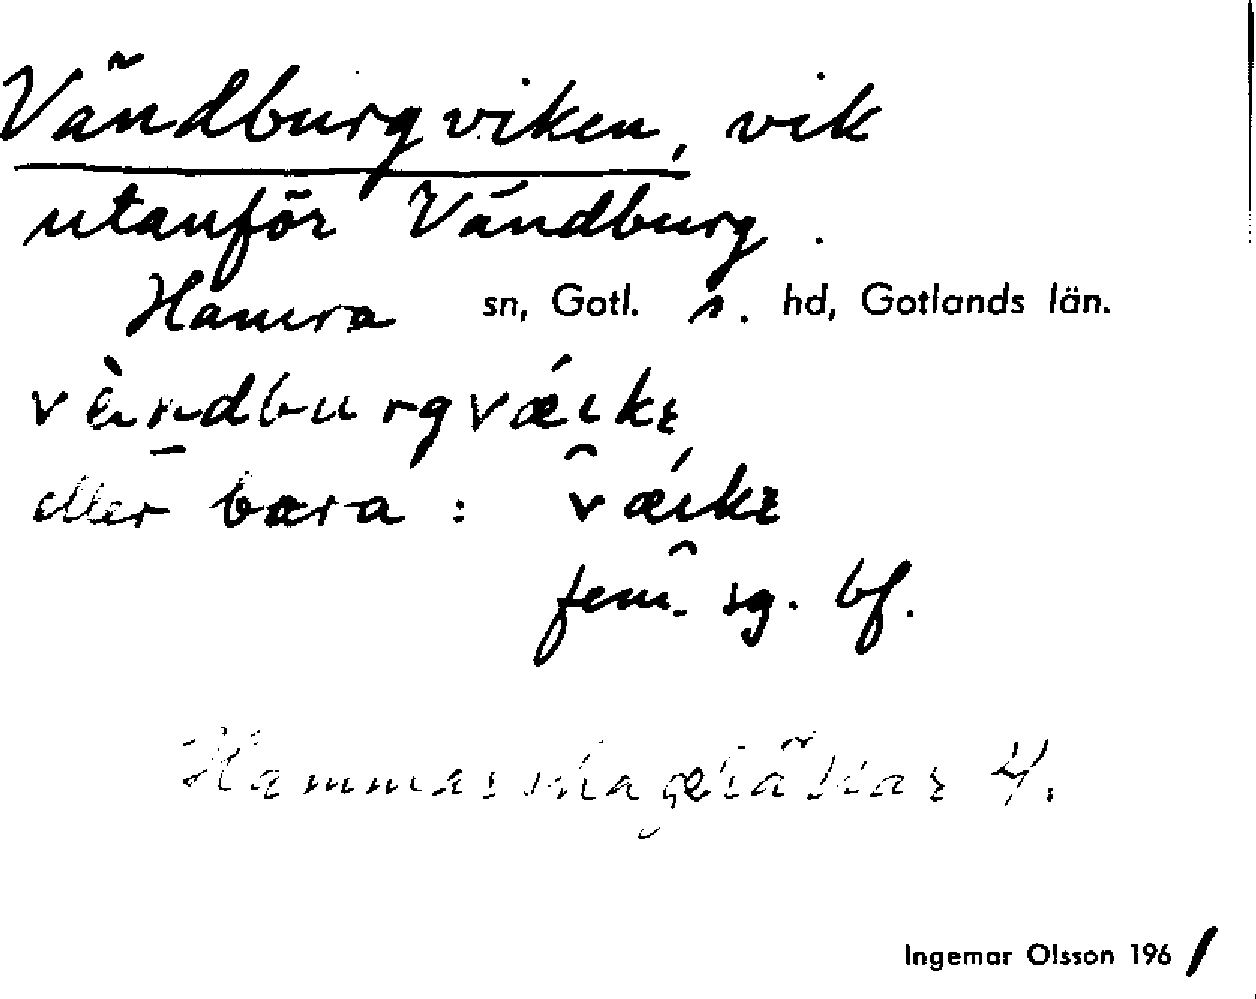 Vändburgviken, vik
utanför Vändburg.
Hamra sn, Gotl. s. hd, Gotlands län.
vè̄ndburgvǽi̯kɛ
eller bara: vǽi̯kɛ
fem. sg. bf.
4.
Ingemar Olsson 1961